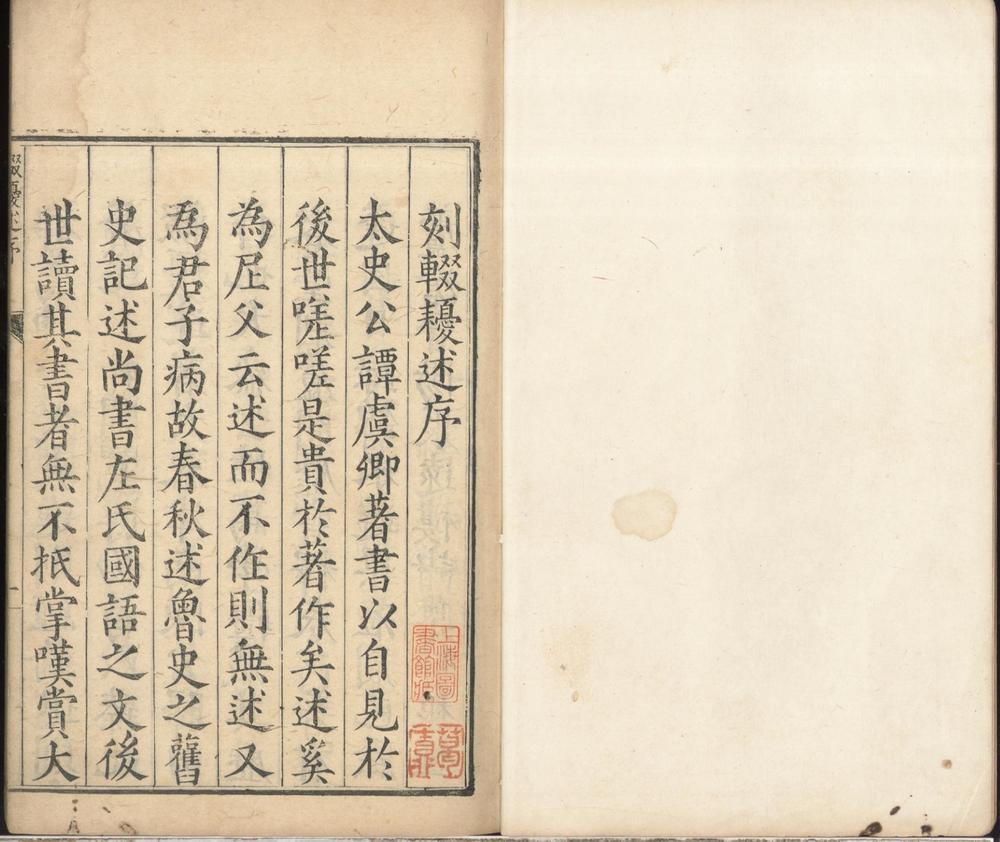 刻輟耰述序
太史公譚虞卿著書以自見於
後世嗟嗟是貴於著作矣述奚
為尼父云述而不作則無述又
爲君子病故春秋述魯史之舊
史記述尚書左氏國語之文後
世讀其書者無不抵掌嘆賞大
輟耰述序
一
上海圖書館藏